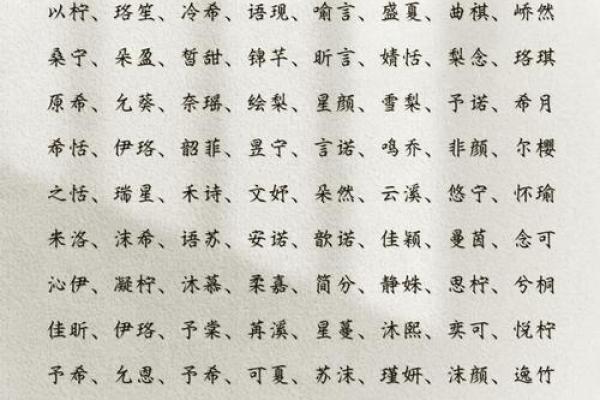 以柠、珞笙、冷希、语现、喻言、盛夏、曲祺、峤然
桑宁、朵盈、皙甜、锦芊、昕言、婧恬、梨念、珞琪
原希、允葵、奈瑶、绘梨、星颜、雪梨、予诺、希月
希恬、伊珞、韶菲、昱宁、言诺、鸣乔、非颜、尔樱
之恬、瑞星、禾诗、文妤、朵然、云溪、悠宁、怀瑜
米洛、沫希、语苏、安诺、歆诺、佳颖、曼茵、念可
沁伊、凝柠、沐慕、柔嘉、简兮、静姝、思柠、兮桐
佳昕、伊珞、予棠、苒溪、星蔓、沐熙、奕可、悦柠
予希、允恩、予希、可夏、苏沫、瑾妍、沫颜、逸竹